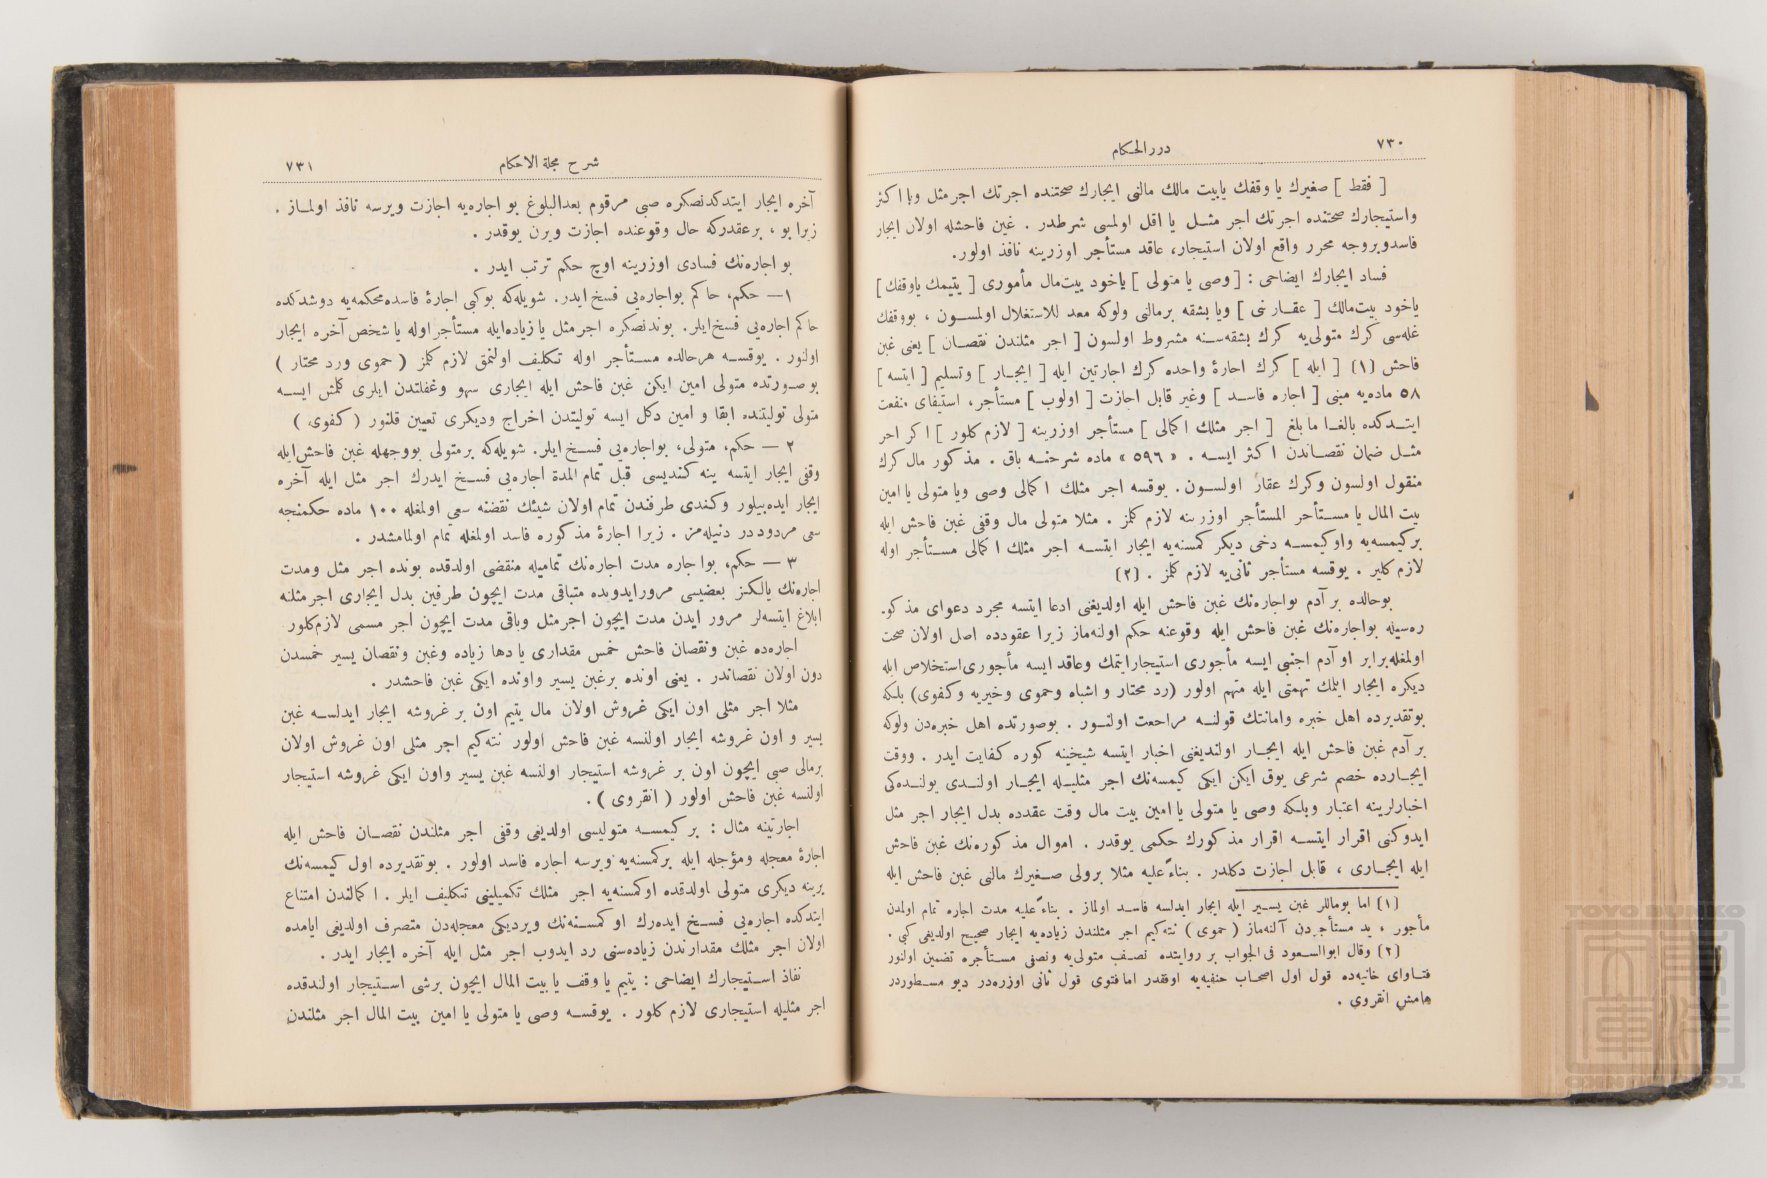 ٧٣٠
دررالحكام
[ فقط ] صغيرك يا وقفك يابيت مالك مالنى ايجارك صحتنده اجرتك اجرمثل ويا اكثر
واستيجارك صحتنده اجرتك اجر مثــل يا اقل اولمسى شرطدر . غبن فاحشله اولان ايجار
فاسدوبروجه محرر واقع اولان استيجار، عاقد مستأجر اوزرينه نافذ اولور.
فساد ايجارك ايضاحى : [ وصى يا متولى ] ياخود بيت‌مال مأمورى [ يتيمك ياوقفك ]
ياخود بيت‌مالك [ عقــارنى ] ويا بشقه برمالنى ولوكه معد للاستغلال اولمســون ، بووقفك
غله‌سى كرك متولى‌يه كرك بشقه‌ســنه مشروط اولسون [ اجر مثلندن نقصــان ] يعنى غبن
فاحش (١) [ ايله ] كرك اجارۀ واحده كرك اجارتين ايله [ ايجــار ] وتسليم [ ايتسه ]
٥٨ ماده‌يه مبنى [ اجاره فاســد ] وغير قابل اجازت [ اولوب ] مستأجر، استيفاى منفعت
ايتــدكده بالغــا مابلغ [ اجر مثلك اكمالى ] مستأجر اوزرينه [ لازم كلور ] اكر اجر
مثــل ضمان نقصــاندن اكثر ايســه . « ٥٩٦ » ماده شرحنــه باق . مذكور مال كرك
منقول اولسون وكرك عقار اولســون. يوقسه اجر مثلك اكمالى وصى ويا متولى يا امين
بيت المال يا مســتأجر المستأجر اوزرينه لازم كلمز . مثلا متولى مال وقفى غبن فاحش ايله
بركيمسه‌يه واوكيمســه دخى ديكر كمسنه‌يه ايجار ايتســه اجر مثلك اكمالى مســتأجر اوله
لازم كلير . يوقسه مستأجر ثانى‌يه لازم كلمز . (٢)
بوحالده بر آدم بواجاره‌نك غبن فاحش ايله اولديغنى ادعا ايتسه مجرد دعواى مذكو.
ره‌سيله بواجاره‌نك غبن فاحش ايله وقوعنه حكم اولنه‌ماز زيرا عقودده اصل اولان صحت
اولمغله‌برابر او آدم اجنبى ايسه مأجورى استيجارايتمك وعاقد ايسه مأجورى‌استخلاص ايله
ديكره ايجار ايلمك تهمتى ايله متهم اولور (رد محتار و اشباه وحموى وخيريه وكفوى) بلكه
بوتقديرده اهل خبره وامانتك قولنــه مراجعت اولنــور . بوصورتده اهل خبره‌دن ولوكه
بر آدم غبن فاحش ايله ايجــار اولنديغنى اخبار ايتسه شيخينه كوره كفايت ايدر . ووقت
ايجــارده خصم شرعى يوق ايكن ايكى كيمسه‌نك اجر مثليــله ايجــار اولنــدى يولنــده‌كى
اخبارلرينه اعتبار وبلكه وصى يا متولى يا امين بيت مال وقت عقدده بدل ايجار اجر مثل
ايدوكنى اقرار ايتســه اقرار مذكورك حكمى يوقدر . اموال مذكوره‌نك غبن فاحش
ايله ايجــارى ، قابل اجازت دكلدر . بناءً عليه مثلا برولى صــغيرك مالنى غبن فاحش ايله
(١) اما بوماللر غبن يســير ايله ايجار ايدلسه فاســد اولماز . بناءً عليه مدت اجاره تمام اولمدن
مأجور ، يد مستأجردن آلنه‌ماز ( حموى ) نته‌كيم اجر مثلندن زياده‌يه ايجار صحيح اولديغى كبى .
(٢) وقال ابوالســعود فى الجواب بر روايتده نصــف متولى‌يه ونصفى مســتأجره تضمين اولنور
فتــاواى خانيه‌ده قول اول اصحاب حنفيه‌يه اوفقدر اما فتوى قول ثانى اوزره‌در ديو مســطوردر
هامش انقروى .
شرح مجلة الاحكام
٧٣١
آخره ايجار ايتدكدنصكره صبى مرقوم بعدالبلوغ بو اجاره‌يه اجازت ويرسه نافذ اولمــاز .
زيرا بو ، برعقدركه حال وقوعنده اجازت ويرن يوقدر .
بو اجاره‌نك فسادى اوزرينه اوچ حكم ترتب ايدر .
١— حكم، حاكم بواجاره‌يى فسخ ايدر. شويله‌كه بوكبى اجارۀ فاسده‌محكمه‌يه دوشدكده
حاكم اجاره‌يى فسخ‌ايلر. بوندنصكره اجر مثل يا زياده‌ايله مستأجراوله يا شخص‌آخره ايجار
اولنور . يوقســه هرحالده مســتأجر اوله تكليف اولنمق لازم كلمز ( حموى ورد محتار )
بو صــورتده متولى امين ايكن غبن فاحش ايله ايجارى سهو وغفلتدن ايلرى كلمش ايســه
متولى توليتنده ابقا و امين دكل ايسه توليتدن اخراج وديكرى تعيين قلنور ( كفوى )
٢ — حكم، متولى، بواجاره‌يى فســخ ايلر. شويله‌كه برمتولى بووجهله غبن فاحش‌ايله
وقفى ايجار ايتسه ينه كنديسى قبل تمام المدة اجاره‌يى فســخ ايدرك اجر مثل ايله آخره
ايجار ايده‌بيلور وكندى طرفندن تمام اولان شيئك نقضنه سعى اولمغله ١٠٠ ماده حكمنجه
سعى مردوددر دنيله‌مز . زيرا اجارۀ مذكوره فاسد اولمغله تمام اولمامشدر .
٣ — حكم، بواجاره مدت اجاره‌نك تماميله منقضى اولدقده بونده اجر مثل ومدت
اجاره‌نك يالكــز بعضيسى مرورايدوبده متباقى مدت ايچون طرفين بدل ايجارى اجرمثلنه
ابلاغ ايتسه‌لر مرور ايدن مدت ايچون اجرمثل وباقى مدت ايچون اجر مسمى لازم‌كلور
اجاره‌ده غبن ونقصان فاحش خمس مقدارى يا دها زياده وغبن ونقصان يسير خمسدن
دون اولان نقصاندر . يعنى اونده برغبن يسير واونده ايكى غبن فاحشدر .
مثلا اجر مثلى اون ايكى غروش اولان مال يتيم اون بر غروشه ايجار ايدلســه غبن
يسير و اون غروشه ايجار اولنسه غبن فاحش اولور نته‌كيم اجر مثلى اون غروش اولان
برمالى صبى ايچون اون بر غروشه استيجار اولنسه غبن يسير واون ايكى غروشه استيجار
اولنسه غبن فاحش اولور ( انقروى ) .
اجارتينه مثال : بر كيمســه متوليسى اولديغى وقفى اجر مثلندن نقصــان فاحش ايله
اجارۀ معجله ومؤجله ايله بركمسنه‌يه ويرسه اجاره فاسد اولور . بوتقديرده اول كيمسه‌نك
يرينه ديكرى متولى اولدقده اوكمسنه‌يه اجر مثلك تكميلينى تكليف ايلر . اكمالندن امتناع
ايتدكده اجاره‌يى فســخ ايده‌رك اوكمســنه‌نك ويرديكى معجله‌دن متصرف اولديغى ايامده
اولان اجر مثلك مقدارندن زياده‌سنى رد ايدوب اجر مثل ايله آخره ايجار ايدر .
نفاذ اســتيجارك ايضاحى : يتيم يا وقف يا بيت المال ايچون برشى اســتيجار اولندقده
اجر مثليله استيجارى لازم كلور . يوقســه وصى يا متولى يا امين بيت المال اجر مثلندن
TOYO BUNKO